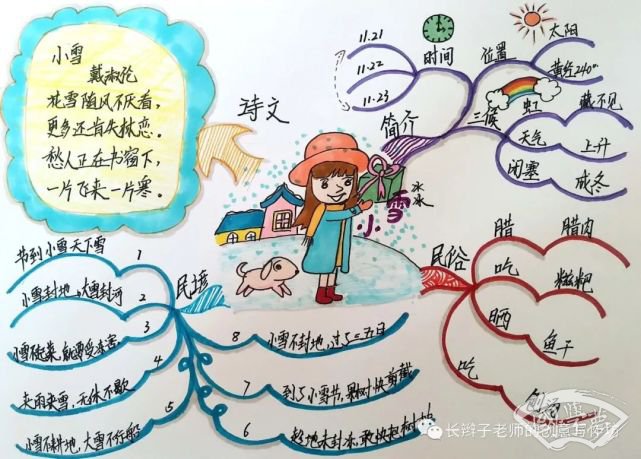 小雪
戴淑伦
花雪随风不厌看,
更多还肯失林恋.
愁人正在书窗下,
一片飞来一片寒.
诗文
小雪
简介
时间
11.21
11.22
11.23
位置
太阳
黄经240°
三候
虹
藏不见
天气
上升
闭塞
成冬
民俗
腊
腊肉
吃
糍粑
晒
鱼干
吃
民谚
节到小雪天下雪
1
小雪封地,大雪封河
2
3
4
5
小雪不耕地,大雪不行船
8
小雪不封地,过了三五日
7
到了小雪节,果树快剪截
6
趁地未封冻,
长辫子老师的创意写作坊